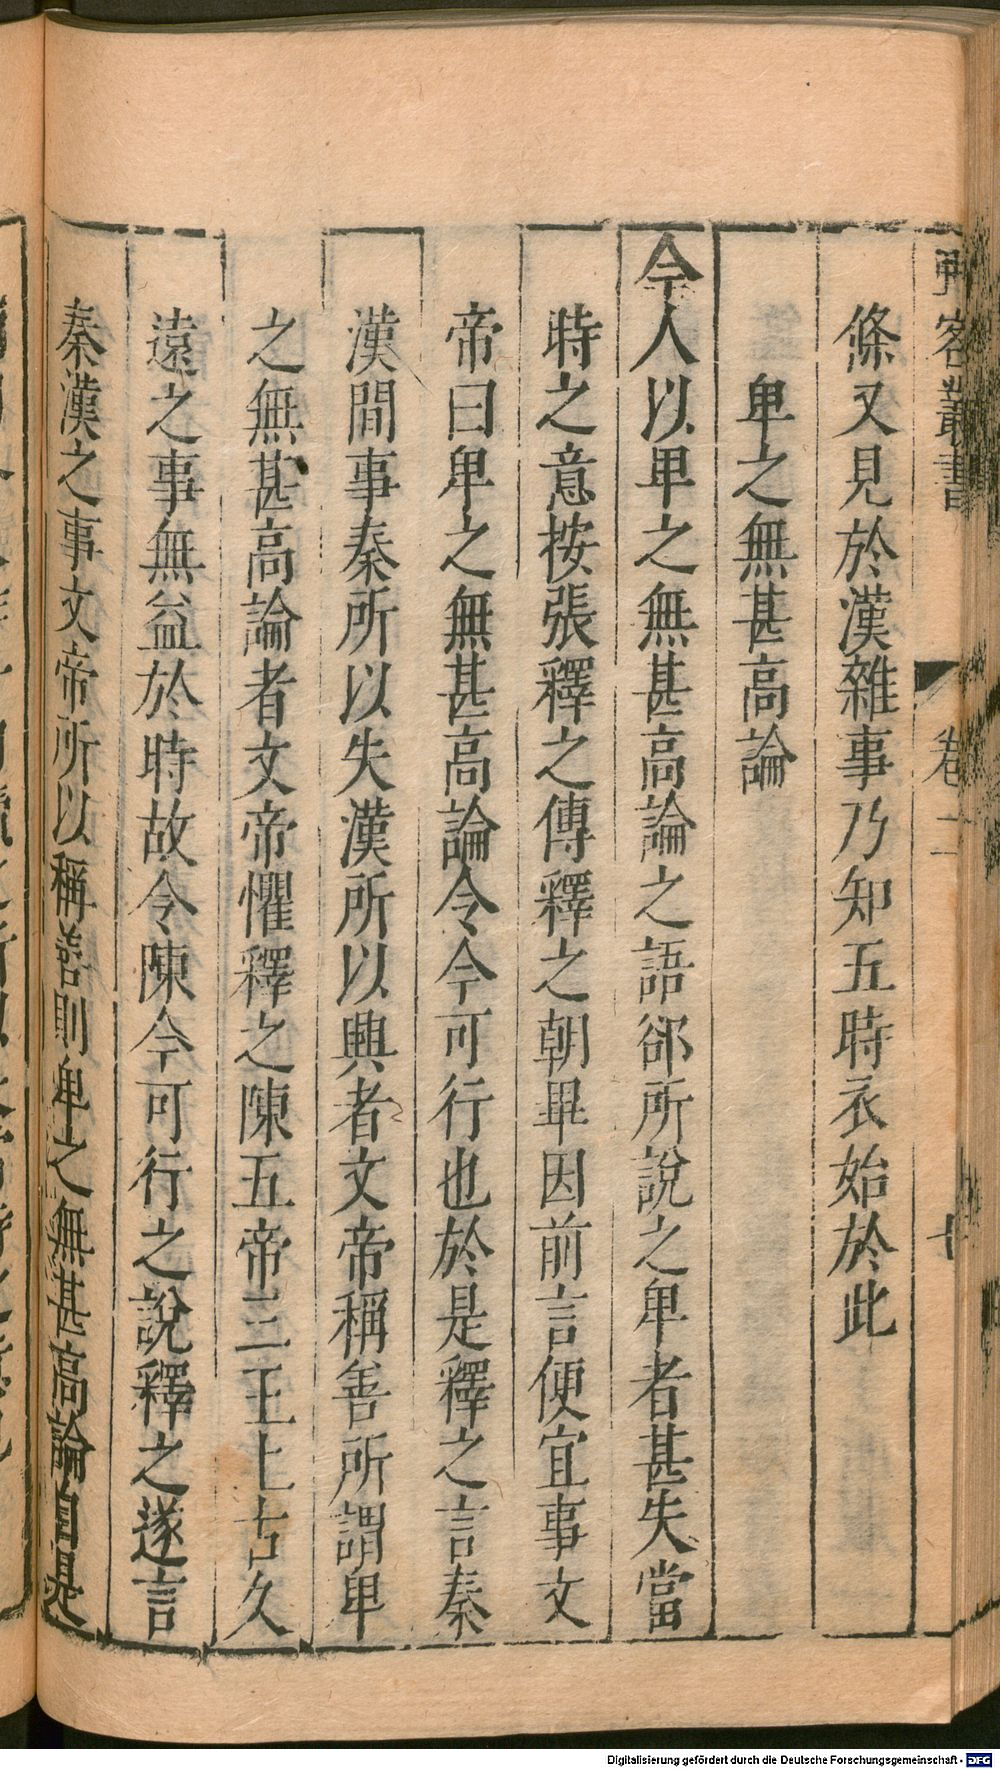 野客叢書 卷二
條又見於漢雜事乃知五時衣始於此
卑之無甚高論
今人以卑之無甚高論之語郤所說之卑者甚失當
時之意按張釋之傳釋之朝畢因前言便宜事文
帝曰卑之無甚高論令今可行也於是釋之言秦
漢間事秦所以失漢所以興者文帝稱善所謂卑
之無甚高論者文帝懼釋之陳五帝三王上古久
遠之事無益於時故令陳今可行之說釋之遂言
秦漢之事文帝所以稱善則卑之無甚高論自是
Digitalisierung gefördert durch die Deutsche Forschungsgemeinschaft - DFG